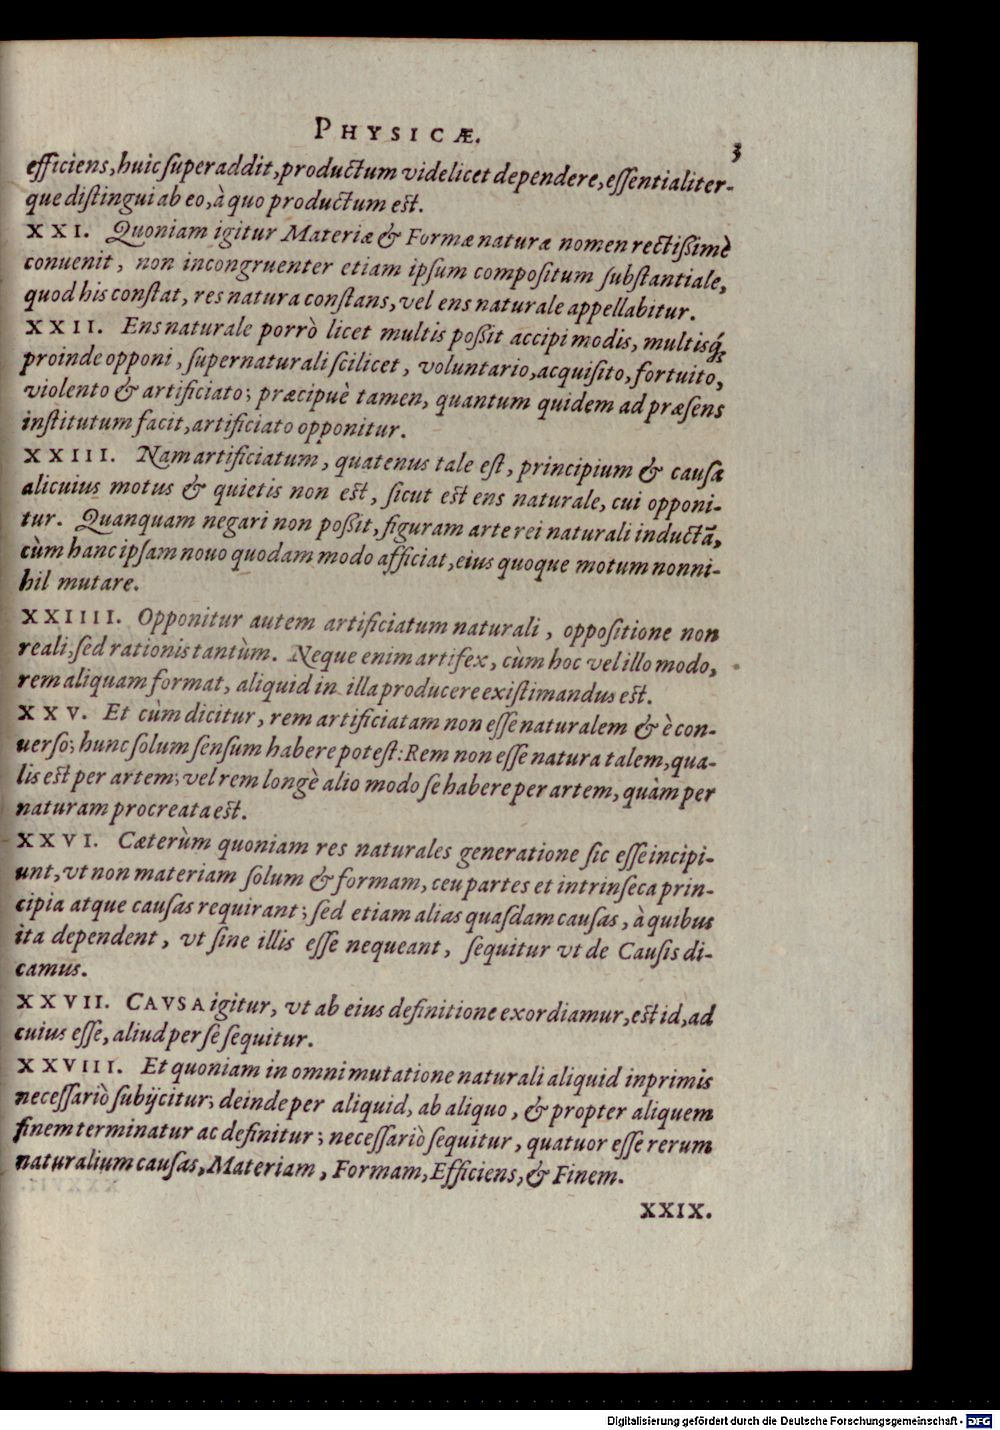 PHYSICÆ.
3
efficiens, huic ſuperaddit, productum videlicet dependere, eſſentialiter-
que diſtingui ab eo, à quo productum eſt.
XXI. Quoniam igitur Materiæ & Formæ naturæ nomen rectiſsimè
conuenit, non incongruenter etiam ipſum compoſitum ſubſtantiale,
quod his conſtat, res natura conſtans, vel ens naturale appellabitur.
XXII. Ens naturale porrò licet multis poſsit accipi modis, multisq́;
proinde opponi, ſupernaturali ſcilicet, voluntario, acquiſito, fortuito,
violento & artificiato; præcipuè tamen, quantum quidem ad præſens
inſtitutum facit, artificiato opponitur.
XXIII. Nam artificiatum, quatenus tale eſt, principium & cauſa
alicuius motus & quietis non eſt, ſicut eſt ens naturale, cui opponi-
tur. Quanquam negari non poſsit, figuram arte rei naturali inductã,
cùm hanc ipſam nouo quodam modo afficiat, eius quoque motum nonni-
hil mutare.
XXIIII. Opponitur autem artificiatum naturali, oppoſitione non
reali, ſed rationis tantùm. Neque enim artifex, cùm hoc vel illo modo,
rem aliquam format, aliquid in illa producere exiſtimandus eſt.
XXV. Et cùm dicitur, rem artificiatam non eſſe naturalem & è con-
uerſo; hunc ſolum ſenſum habere poteſt: Rem non eſſe natura talem, qua-
lis eſt per artem; vel rem longè alio modo ſe habere per artem, quàm per
naturam procreata eſt.
XXVI. Cæterùm quoniam res naturales generatione ſic eſſe incipi-
unt, vt non materiam ſolum & formam, ceu partes et intrinſeca prin-
cipia atque cauſas requirant; ſed etiam alias quaſdam cauſas, à quibus
ita dependent, vt ſine illis eſſe nequeant, ſequitur vt de Cauſis di-
camus.
XXVII. CAVSA igitur, vt ab eius definitione exordiamur, eſt id, ad
cuius eſſe, aliud per ſe ſequitur.
XXVIII. Et quoniam in omni mutatione naturali aliquid inprimis
neceſſariò ſubijcitur; deinde per aliquid, ab aliquo, & propter aliquem
finem terminatur ac definitur; neceſſariò ſequitur, quatuor eſſe rerum
naturalium cauſas, Materiam, Formam, Efficiens, & Finem.
XXIX.
Digitalisierung gefördert durch die Deutsche Forschungsgemeinschaft - DFG